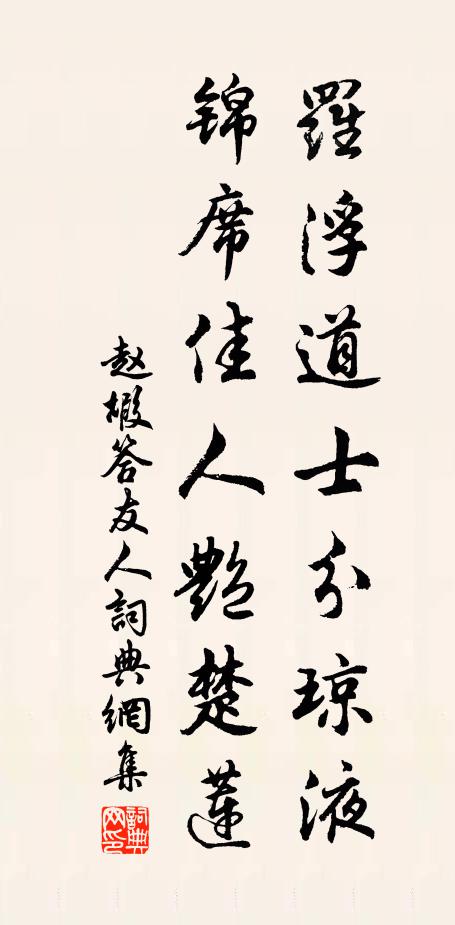 羅浮道士分琼液
锦席佳人艷楚蓮
赵椵答友人詞典網集
詞典網印